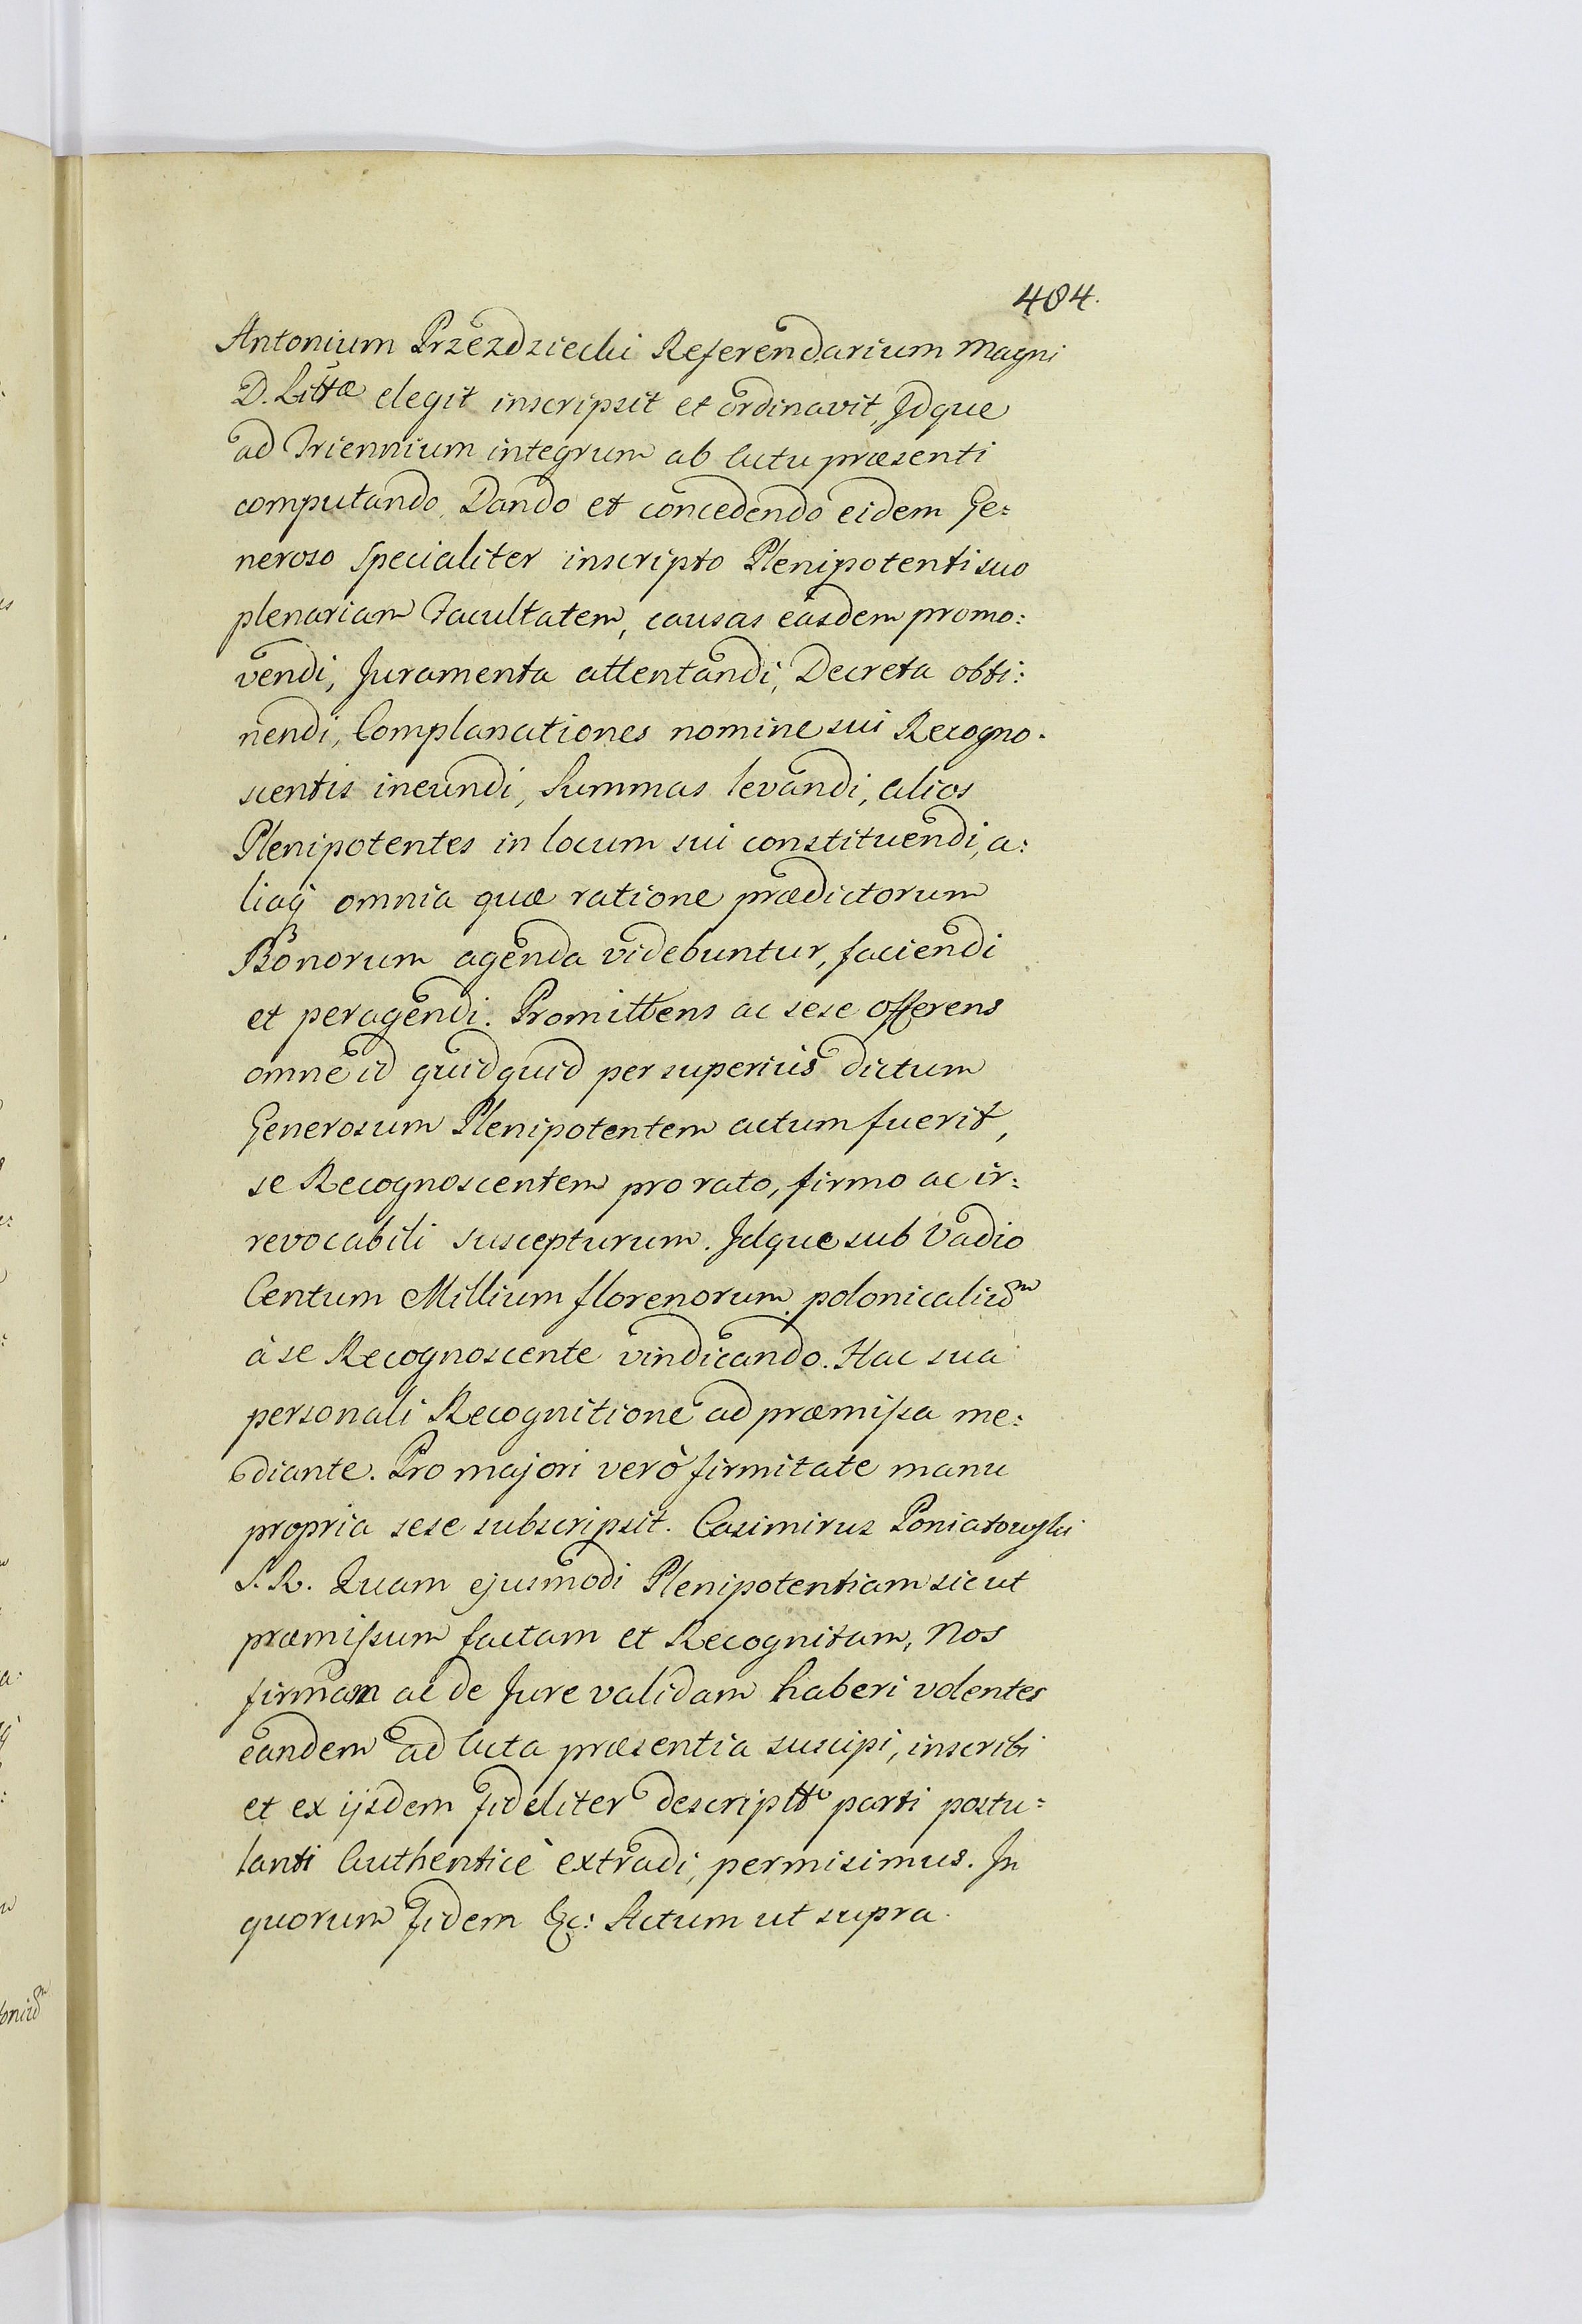 404.
Antonium Przezdziecki Referendarium Magni
D. Littæ elegit inscripsit et ordinavit, Jdque
ad Triennium integrum ab Actu præsenti
computando. Dando et concedendo eidem Ge:
neroso specialiter inscripto Plenipotenti suo
plenariam Facultatem, causas easdem promo:
vendi, Juramenta attentandi, Decreta obti:
nendi, Complanationes nomine sui Recogno.
scentis ineundi, Summas levandi, alios
Plenipotentes in locum sui constituendi, a:
liaq omnia quæ ratione prædictorum
Bonorum agenda videbuntur, faciendi
et peragendi. Promittens ac sese offerens
omne id quidquid per superius dictum
Generosum Plenipotentem actum fuerit,
se Recognoscentem pro rato, firmo ac ir:
revocabili suscepturum. Jdque sub Vadio
Centum Millium florenorum polonicaliu͠m
à se Recognoscente vindicando. Hac sua
personali Recognitione ad præmissa me:
diante. Pro majori verò firmitate manu
propria sese subscripsit. Casimirus Poniatowski
S. R. Quam ejusmodi Plenipotentiam sic ut
præmissum factam et Recognitam, Nos
firmam ac de Jure validam haberi volentes
eandem ad Acta præsentia suscipi, inscribi
et ex ijsdem fideliter descriptto parti postu:
lanti Authenticè extradi, permisimus. Jn
quorum Fidem &c: Actum ut supra.